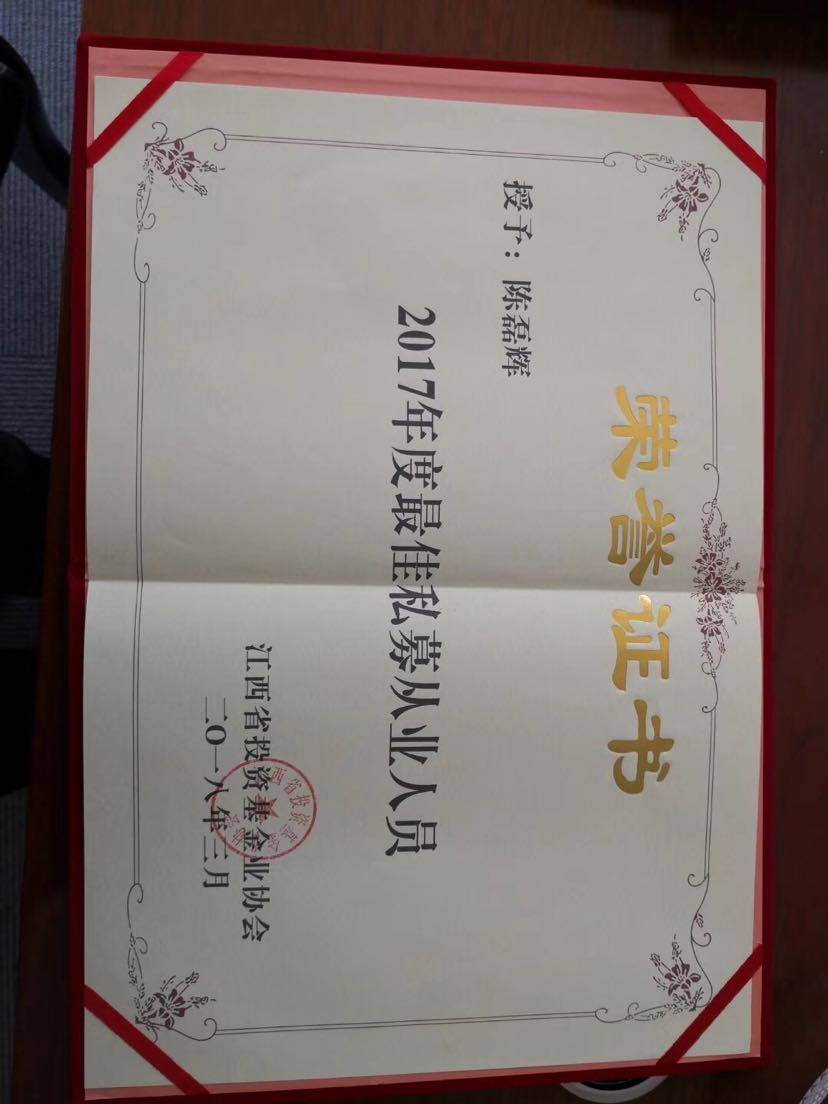 荣誉证书
授予：陈磊辉
2017年度最佳私募从业人员
江西省投资基金业协会
二〇一八年三月